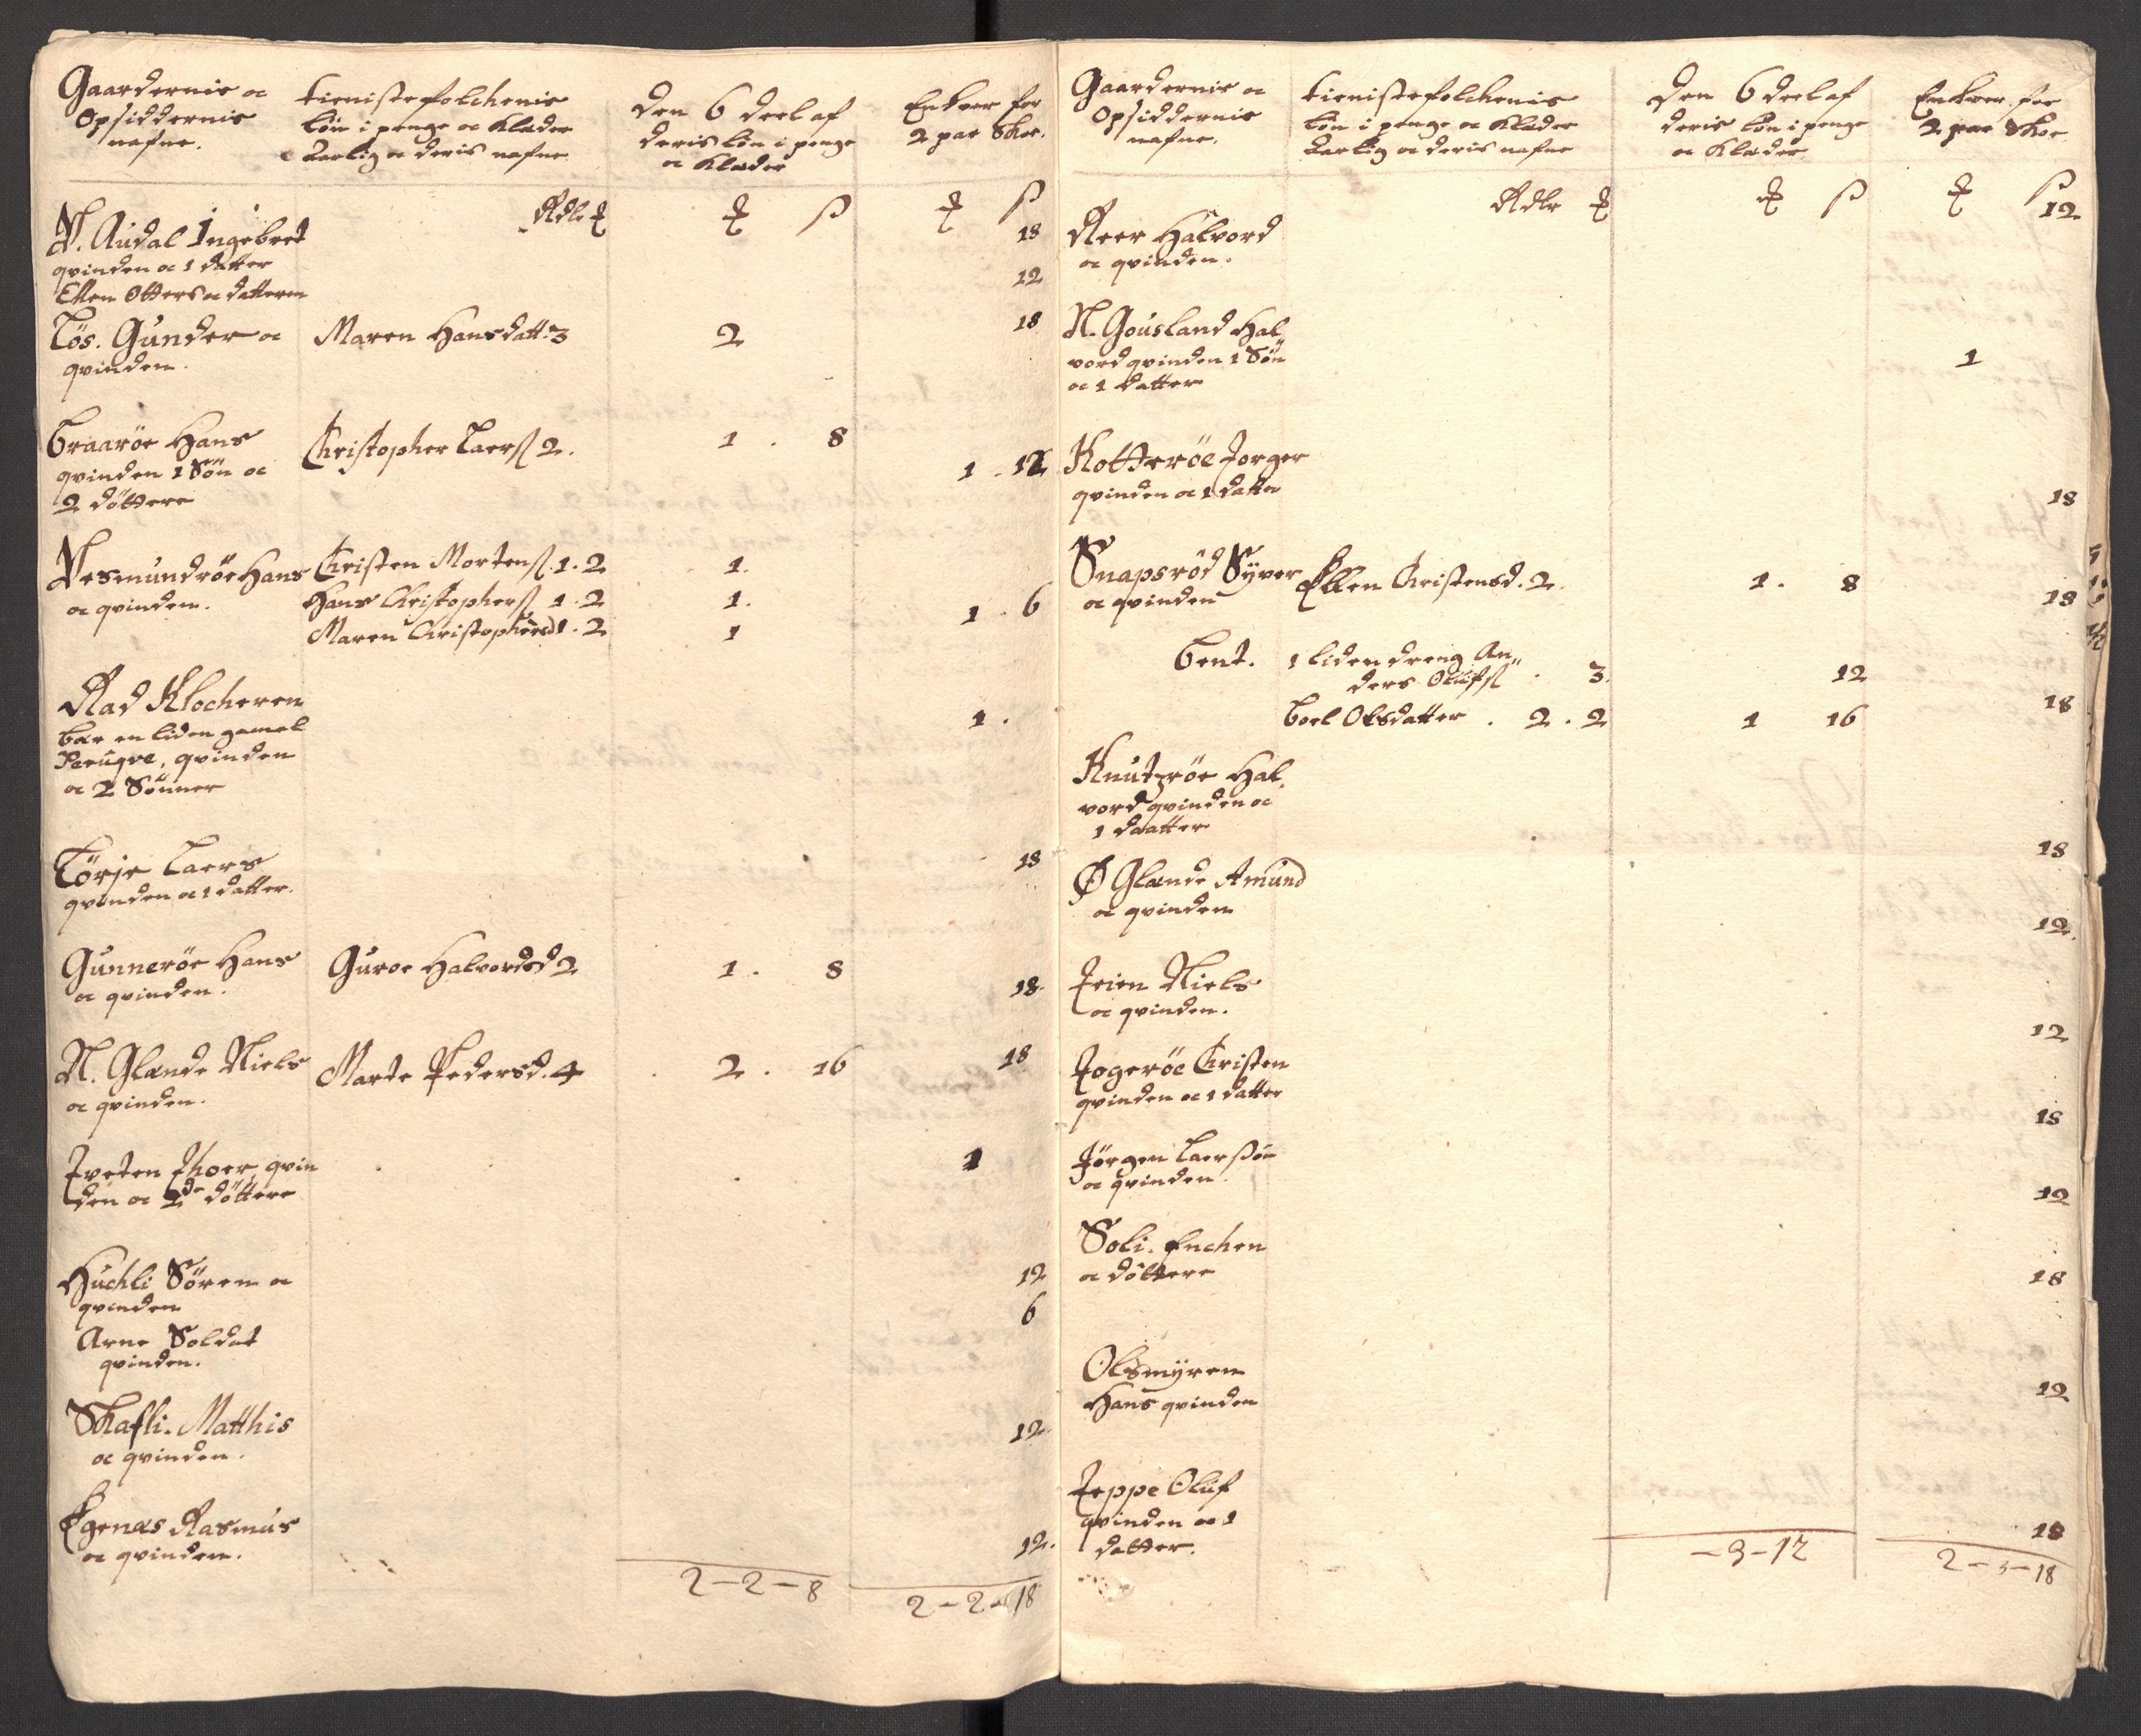 Gaardernis oc
Opsiddernis
nafne.
tienistefolchenis
løn i penge oc Klæder
aarlig oc deris nafne
Den 6 deel af
deris løn i penge
oc Klæder
Enhver for
2 par Skoe.
Rdlr
V. Audal Ingebret
qvinden oc 1 datter
18
Ellen Otters oc datteren
12
Løs. Gunder oc
qvinden.
Maren Hansdatt. 3
2
18
Braarøe Hans
qvinden 1 Søn oc
2 døttere
Christopher Laers 2.
1 . 8
1 . 12
Vesmundrøe Hans
oc qvinden.
Christen Mortens. 1. 2
1.
Hans Christophers 1. 2
1.
1 . 6
Maren Christophersd 1. 2
1
Rad Klocheren
bær en liden gamel
Paruqve, qvinden
oc 2 Sønner
1.
Tørje Laers
qvinden oc 1 datter.
18
Gunnerøe Hans
oc qvinden.
Guroe Halvordsd 2
1. 8
18.
N. Glende Niels
oc qvinden.
Marte Pedersd. 4
2. 16
18
Tveten Thoer, qvin
den oc 2de døttere
1
Huchli Søren oc
qvinden
12
Arne Soldat
qvinden.
6
Skafli. Matthis
oc qvinden.
12
Egenæs Rasmus
oc qvinden.
12.
2-2-8
2-2-18
Gaardernis oc
Opsiddernis
nafne.
tienistefolchenis
løn i penge oc Klæder
aarlig oc deris nafne
Den 6 deel af
deris løn i penge
oc Klæder
Enhver for
2 par Skoe
Rdlr
Reer Halvord
oc qvinden.
12
N. Gousland Hal
vord qvinden 1 Søn
oc 1 datter
1
Kotterøe Jorger
qvinden oc 1 datter
18
Snapsrød Syver
oc qvinden
Ellen Christensd. 2.
1. 8
18
bent. 1 liden dreng An
ders Olufs . 3.
12
Boel Olsdatter . 2. 2
1 16
18
Knutzrøe Hal
vord qvinden oc
1 daatter
18
Ø Glende Amund
oc qvinden
12.
Jeien Niels
oc qvinden.
12
Jogerøe Christen
qvinden oc 1 datter
18
Jørgen Laersøn
oc qvinden
12
Soli. Enchen
oc døttere
18
Olsmyren
Hans qvinden
12
Jeppe Oluf
qvinden oc 1
datter.
18
-3-12
2-3-18